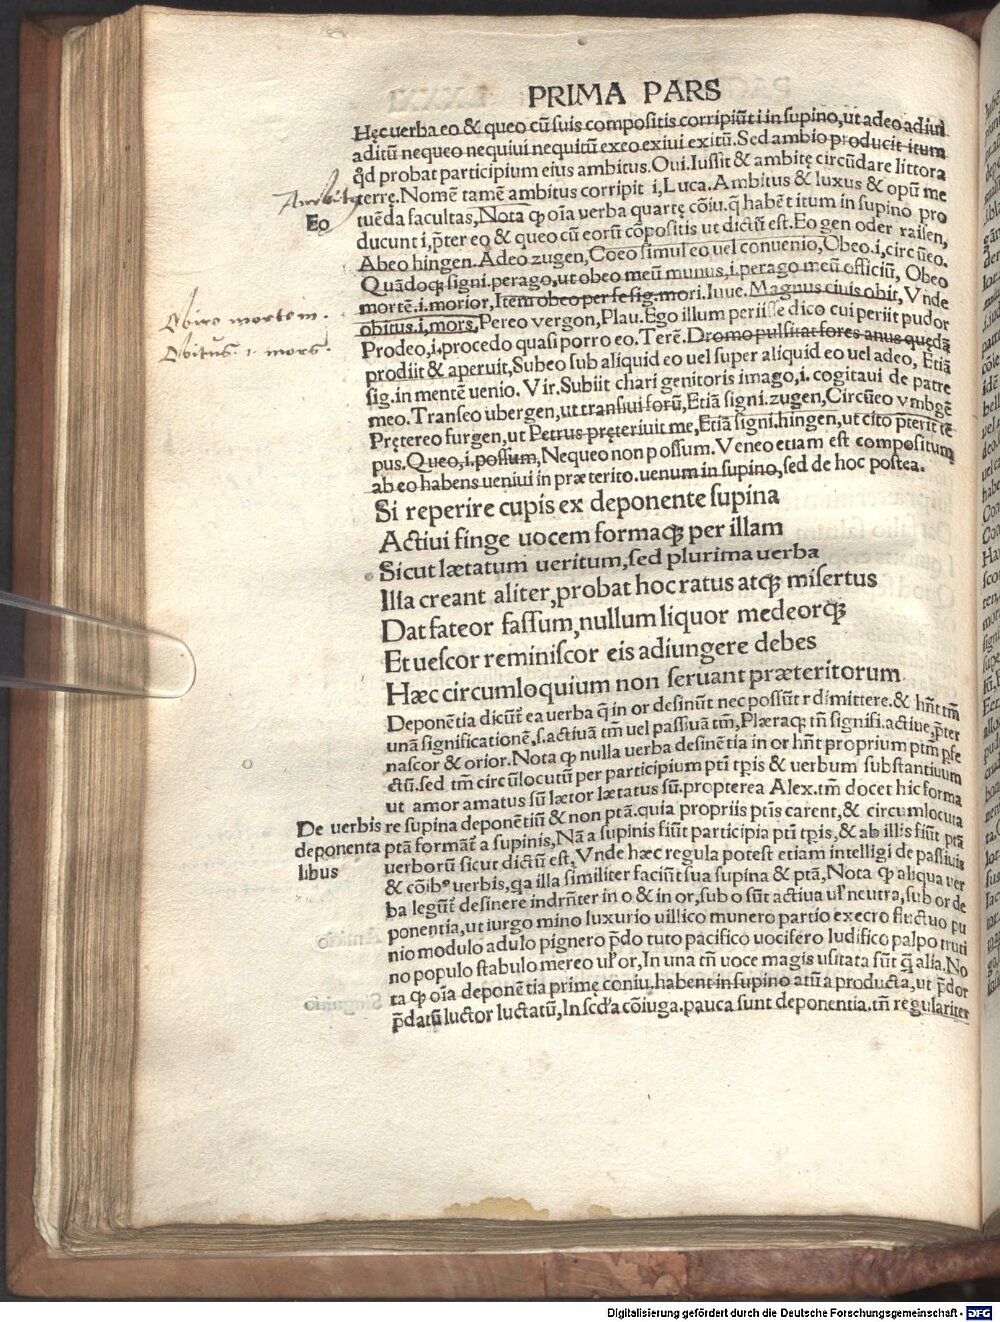 PRIMA PARS
Hęc uerba eo & queo cũ suis compositis corripiũt i in supino, ut adeo adiui
aditũ nequeo nequiui nequitũ exeo exiui exitũ. Sed ambio producit itum
qd̓ probat participium eius ambitus. Oui. Iussit & ambitę circũdare littora
Ambitus
terrę. Nomẽ tamẽ ambitus corripit i, Luca. Ambitus & luxus & opũ me
Eo
tuẽda facultas, Nota ꝙ oĩa uerba quartę cõiu. q̃ habẽt itum in supino pro
ducunt i, p̃ter eo & queo cũ eorũ cõpositis ut dictũ est. Eo gen oder raisen,
Abeo hingen. Adeo zugen, Coeo simul eo uel conuenio, Obeo .i, circũeo.
Quãdoqꝫ signi. perago, ut obeo meũ munus, i. perago meũ officiũ, Obeo
mortẽ .i. morior, Item obeo per se sig. mori. Iuue. Magnus ciuis obit, Vnde
Obire mortem.
obitus .i, mors, Pereo vergon, Plau. Ego illum periisse dico cui periit pudor
Obitus .i. mors.
Prodeo, i, procedo quasi porro eo. Terẽ. Dromo pulsitat fores anus quędã
prodiit & aperuit, Subeo sub aliquid eo uel super aliquid eo uel adeo, Etiã
sig. in mentẽ uenio. Vir. Subiit chari genitoris imago, i. cogitaui de patre
meo. Transeo ubergen, ut transiui forũ, Etiã signi. zugen, Circũeo vmbgẽ
Prętereo furgen, ut Petrus pręteriuit me, Etiã signi. hingen, ut cito p̃terit tẽ
pus. Queo, i. possum, Nequeo non possum. Veneo etiam est compositum
ab eo habens ueniui in præterito. uenum in supino, sed de hoc postea.
Si reperire cupis ex deponente supina
Actiui finge uocem formaqꝫ per illam
Sicut lætatum ueritum, sed plurima uerba
Illa creant aliter, probat hoc ratus atqꝫ misertus
Dat fateor fassum, nullum liquor medeorqꝫ
Et uescor reminiscor eis adiungere debes
Hæc circumloquium non seruant præteritorum.
Deponẽtia dicũt̃ ea uerba q̃ in or desinũt nec possũt r dimittere. & hñt tm̃
unã significationẽ, s. actiuã tm̃ uel passiuã tm̃, Plæraqꝫ tñ signifi. actiue, p̃ter
nascor & orior. Nota ꝙ nulla uerba desinẽtia in or hñt proprium ptm̃ pfe
ctũ. sed tm̃ circũlocutũ per participium pti̓ tp̃is & uerbum substantiuum
ut amor amatus sũ lætor lætatus sũ. propterea Alex. tm̃ docet hic forma
De uerbis
re supina deponẽtiũ & non ptã. quia propriis ptis̃ carent, & circumlocuta
deponenta
ptã formãt̃ a supinis, Nã a supinis fiũt participia pti̓ tp̃is, & ab illis fiũt ptã
libus
uerborũ sicut dictũ est, Vnde hæc regula potest etiam intelligi de passiuis
& cõibꝰ uerbis, qa illa similiter faciũt sua supina & ptã, Nota ꝙ aliqua ver
ba legũt̃ desinere indrñter in o & in or, sub o sũt actiua ul̓ neutra, sub or de
ponentia, ut iurgo mino luxurio uillico munero partio execro fluctuo pu
nio modulo adulo pignero p̃do tuto pacifico uocifero ludifico palpo truti
no populo stabulo mereo ul̓ or, In una tñ uoce magis usitata sũt q̃ alia. No
ta ꝙ oĩa deponẽtia primę coniu. habent in supino atũ a producta, ut p̃dor
p̃datũ luctor luctatũ, In scd̓a cõiuga. pauca sunt deponentia. tñ regulariter
Digitalisierung gefördert durch die Deutsche Forschungsgemeinschaft - DFG